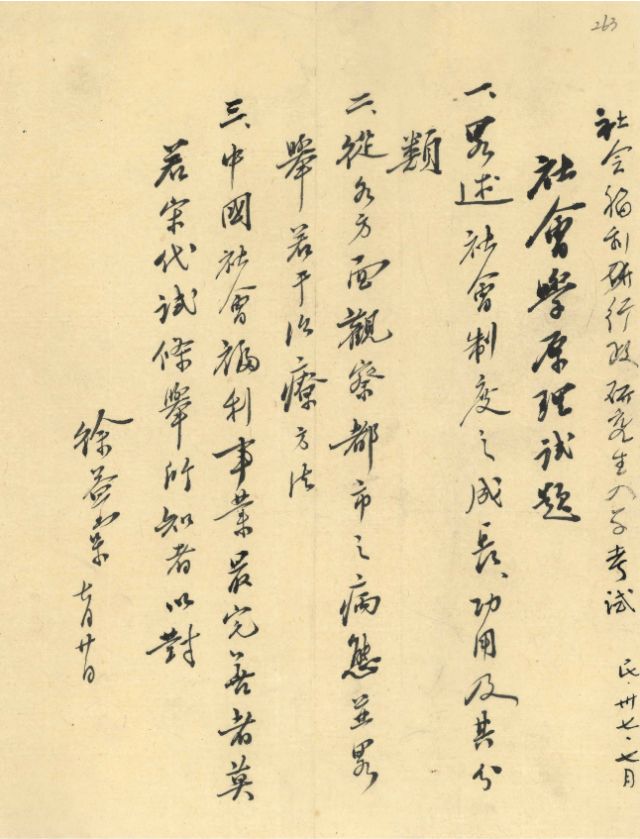 263
社会福利行政研究生入学考试 民卅七、七月
社會學原理試題
一、畧述社會制度之成長、功用及其分
類
二、從各方面觀察都市之病態並畧
舉若干治療方法
三、中國社會福利事業最完善者莫
若宋代試條舉所知者以對
徐益棠 七月廿日